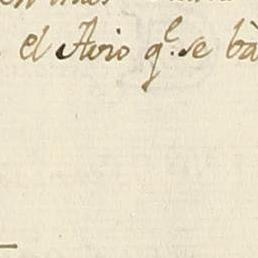 el Avio q.e se bà